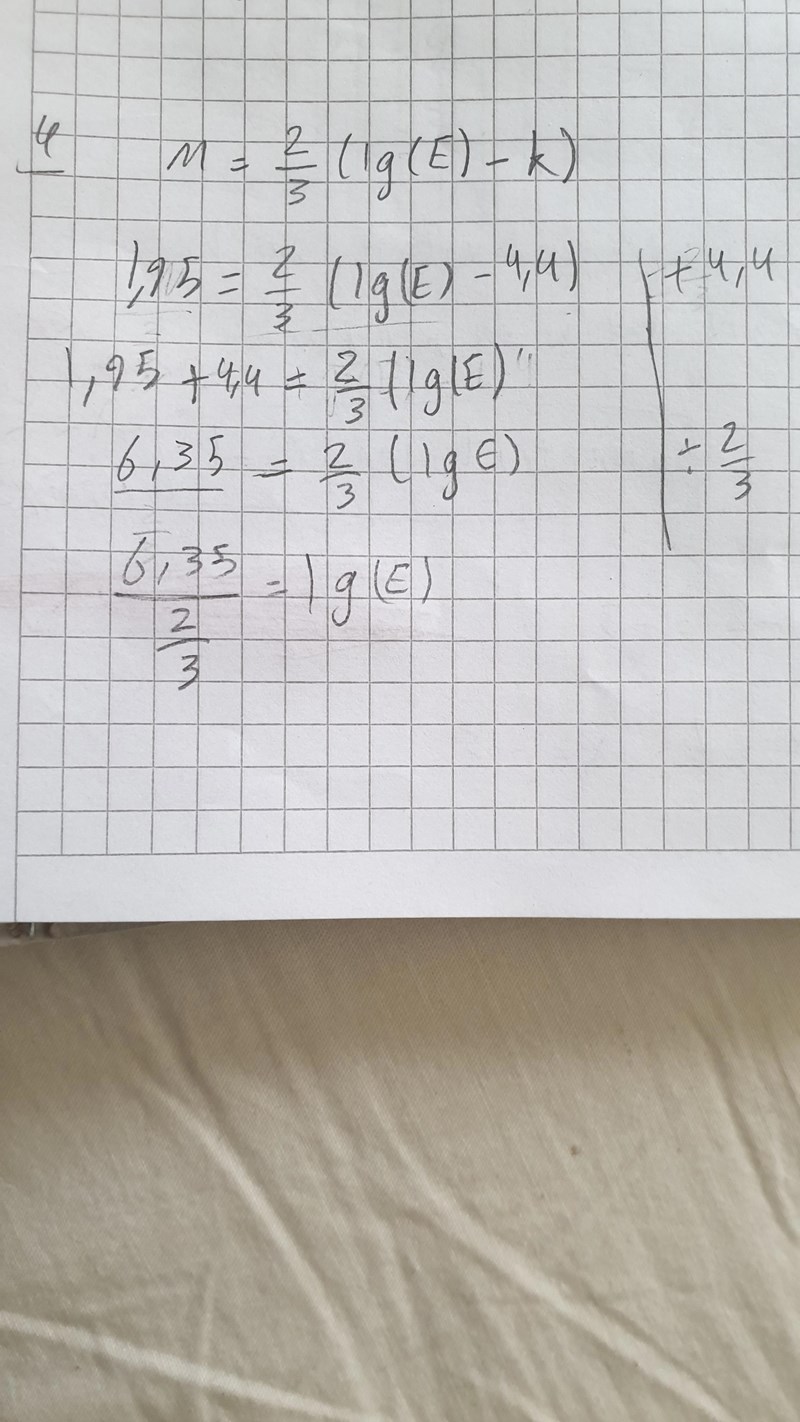 4
M = 2/3 (lg(E) - k)
1,95 = 2/3 (lg(E) - 4,4) | + 4,4
1,95 + 4,4 = 2/3 (lg(E)
6,35 = 2/3 (lg E) | ÷ 2/3
6,35 / 2/3 = lg(E)